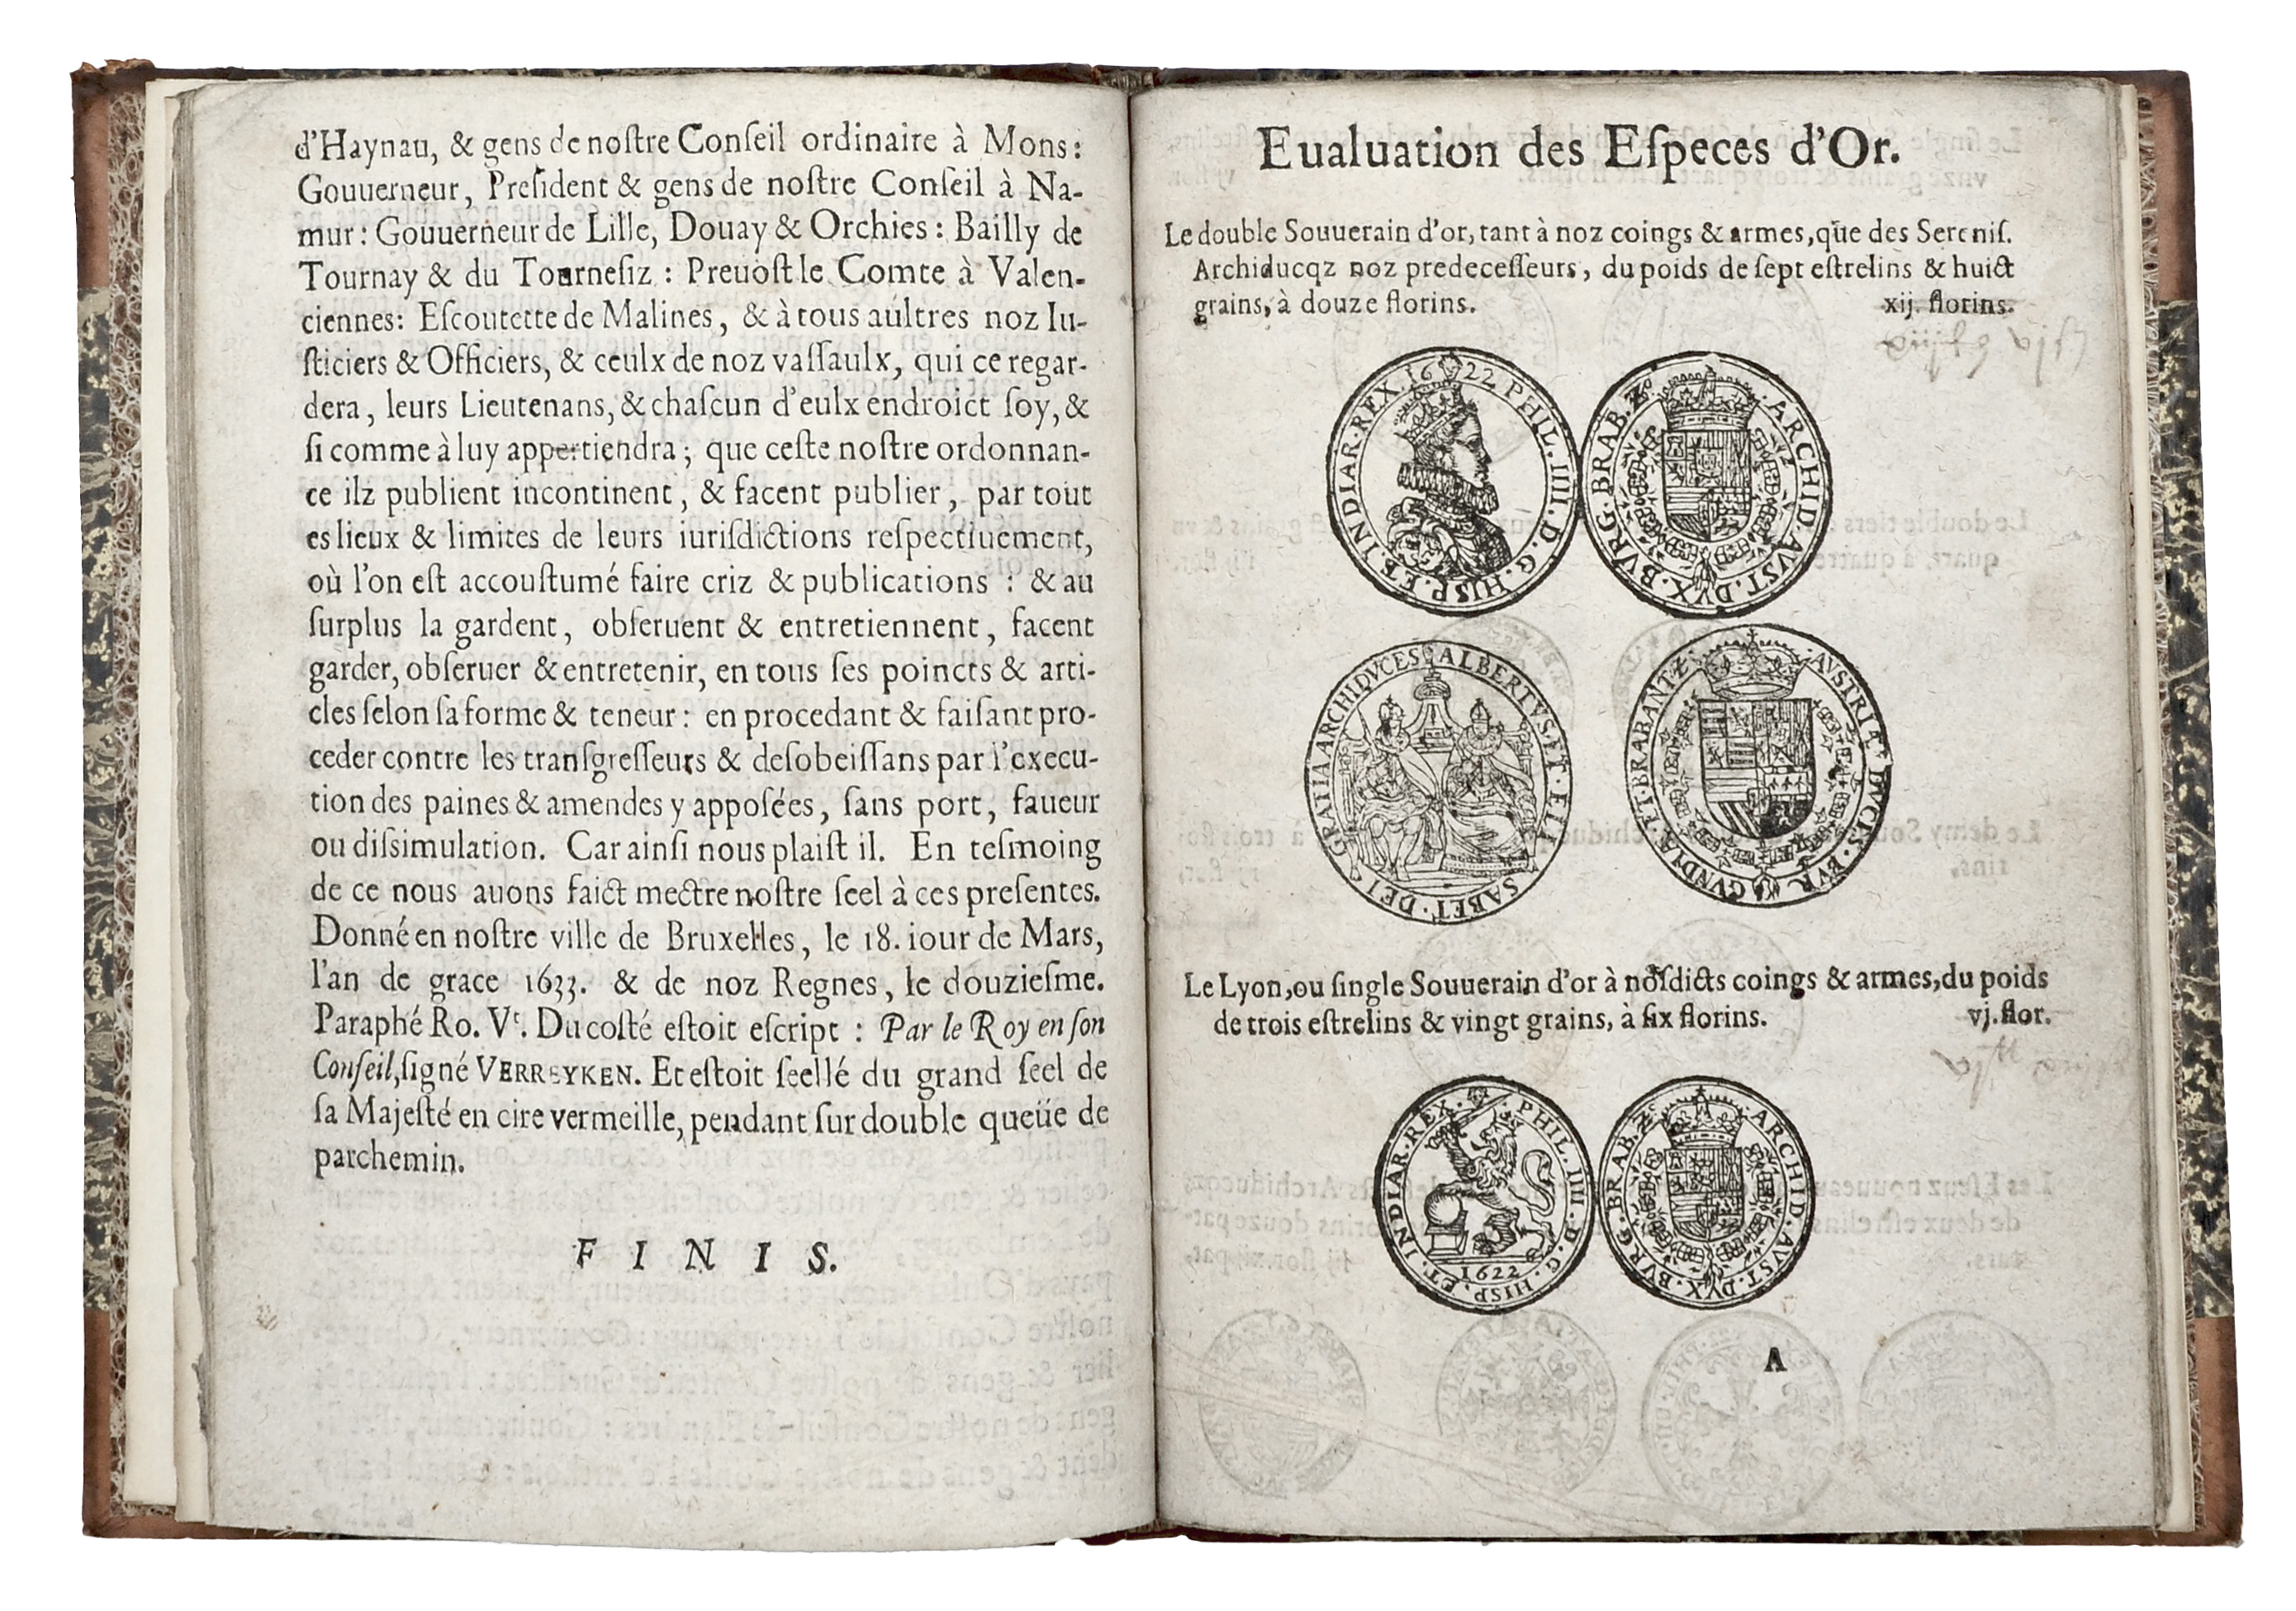 d'Haynau, & gens de noſtre Conſeil ordinaire à Mons:
Gouuerneur, Preſident & gens de noſtre Conſeil à Na-
mur: Gouuerneur de Lille, Douay & Orchies: Bailly de
Tournay & du Tournesiz: Preuoſt le Comte à Valen-
ciennes: Eſcoutette de Malines, & à tous aultres noz Iu-
ſticiers & Officiers, & ceulx de noz vaſſaulx, qui ce regar-
dera, leurs Lieutenans, & chaſcun d'eulx endroict ſoy, &
ſi comme à luy appertiendra; que ceſte noſtre ordonnan-
ce ilz publient incontinent, & facent publier, par tout
es lieux & limites de leurs iuriſdictions reſpectiuement,
où l'on eſt accouſtumé faire criz & publications: & au
ſurplus la gardent, obſeruent & entretiennent, facent
garder, obſeruer & entretenir, en tous ſes poincts & arti-
cles ſelon ſa forme & teneur: en procedant & faiſant pro-
ceder contre les tranſgreſſeurs & deſobeiſſans par l'execu-
tion des paines & amendes y appoſées, ſans port, faueur
ou diſsimulation. Car ainſi nous plaiſt il. En teſmoing
de ce nous auons faict mectre noſtre ſeel à ces preſentes.
Donné en noſtre ville de Bruxelles, le 18. iour de Mars,
l'an de grace 1633. & de noz Regnes, le douzieſme.
Paraphé Ro. Vt. Du coſté eſtoit eſcript: Par le Roy en ſon
Conſeil, ſigné VERREYKEN. Et eſtoit ſeellé du grand ſeel de
ſa Majeſté en cire vermeille, pendant ſur double queüe de
parchemin.
F I N I S.
Eualuation des Eſpeces d'Or.
Le double Souuerain d'or, tant à noz coings & armes, que des Sereniſ.
Archiducqz noz predeceſſeurs, du poids de ſept eſtrelins & huict
grains, à douze florins. xij. florins.
16 22 PHIL. IIII. D. G. HISP. ET. INDIAR. REX.
ARCHID. AVST. DVX. BVRG. BRAB. Zc
ALBERTVS. ET. ELISABET. DEI GRATIA ARCHIDVCES
AVSTRIÆ DVCES. BVRGVNDIÆ. ET. BRABANT. Z.
Le Lyon, ou ſingle Souuerain d'or à noſdicts coings & armes, du poids
de trois eſtrelins & vingt grains, à ſix florins. vj. flor.
PHIL. IIII. D. G. HISP. ET. INDIAR. REX.
1622
ARCHID. AVST. DVX. BVRG. BRAB. Zc
A